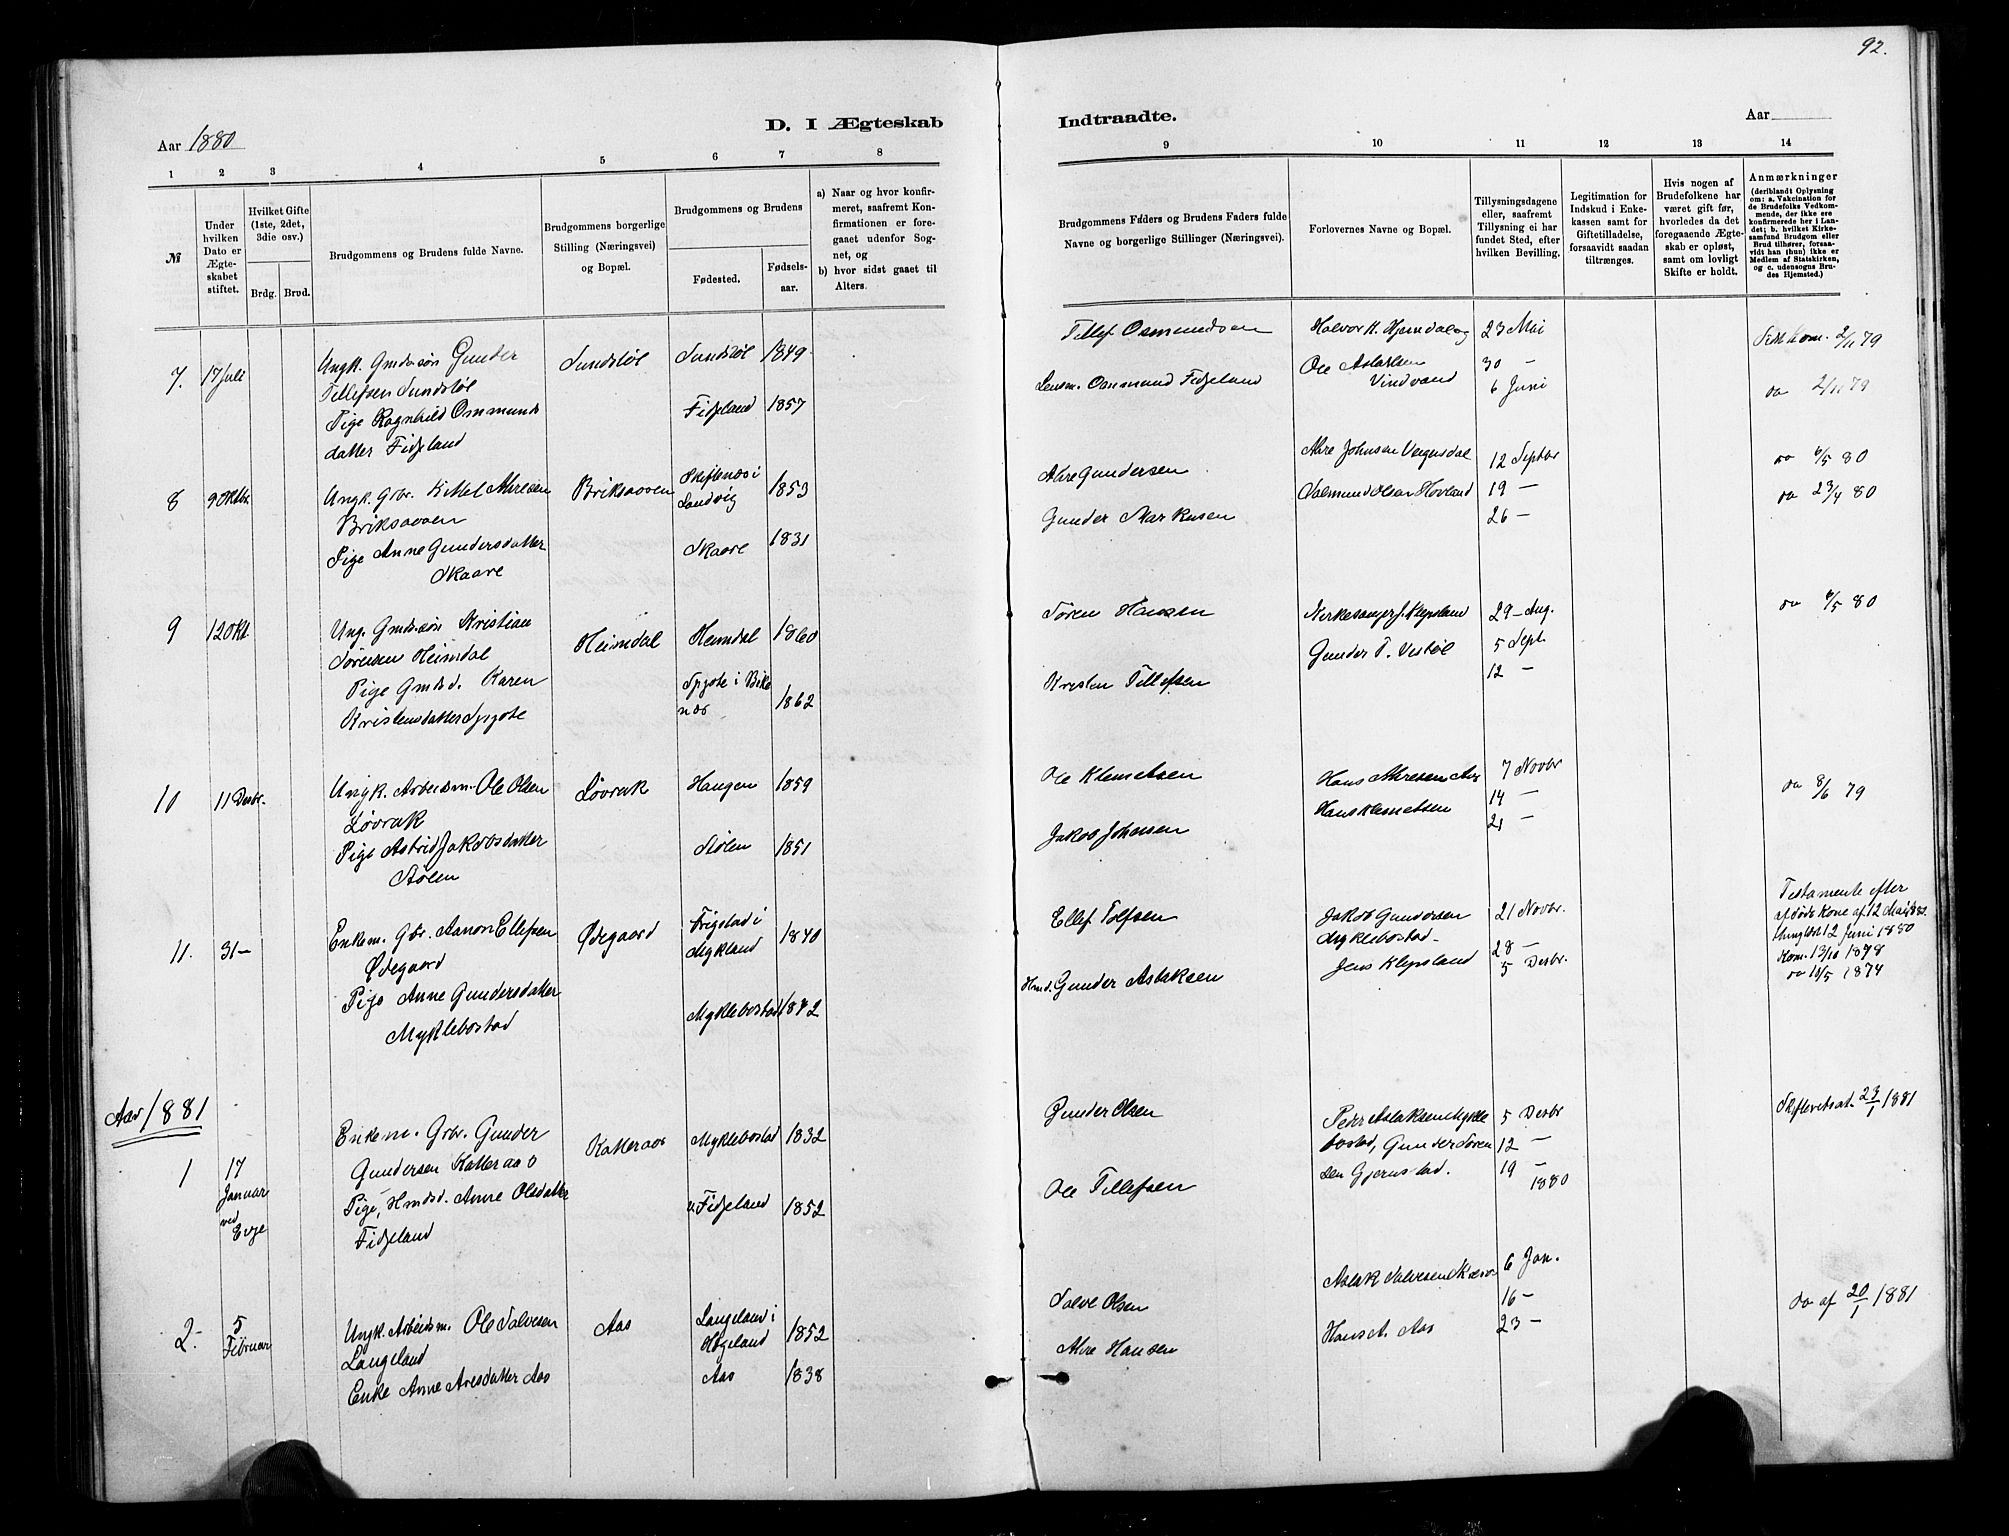 92.
Aar 1880
D. I Ægteskab
Indtraadte.
Aar
1 2 3 4 5 6 7 8 9 10 11 12 13 14
№
Under hvilken Dato er Ægteskabet stiftet.
Hvilket Gifte (1ste, 2det, 3die osv.)
Brdg. Brud.
Brudgommens og Brudens fulde Navne.
Brudgommens borgerlige Stilling (Næringsvei) og Bopæl.
Brudgommens og Brudens
Fødested.
Fødselsaar.
a) Naar og hvor konfirmeret, saafremt Konfirmationen er foregaaet udenfor Sognet, og
b) hvor sidst gaaet til Alters.
Brudgommens Faders og Brudens Faders fulde Navne og borgerlige Stillinger (Næringsvei).
Forlovernes Navne og Bopæl.
Tillysningsdagene eller, saafremt Tillysning ei har fundet Sted, efter hvilken Bevilling.
Legitimation for Indskud i Enkekassen samt for Giftetilladelse, forsaavidt saadan tiltrænges.
Hvis nogen af Brudefolkene har været gift før, hvorledes da det foregaaende Ægteskab er opløst, samt om lovligt Skifte er holdt.
Anmærkninger
(deriblandt Oplysning om: a. Vakcination for de Brudefolks Vedkommende, der ikke ere konfirmerede her i Landet; b. hvilket Kirkesamfund Brudgom eller Brud tilhører, forsaavidt han (hun) ikke er Medlem af Statskirken, og c. udensogns Brudes Hjemsted.)
7. 17 Juli
Ungk. Gmdssøn Gunder
Tellefsen Sundstøl
Pige Ragnhild Ommunds
datter Fidjeland
Sundstøl
Sundstøl 1849
Fidjeland 1857
Tellef Osmundsen
Lensm. Osmund Fidjeland
Halvor K. Hjemdal og
Ole Aslaksen
Vindvand
23 Mai
30 -
6 Juni
Sidst kom. 2/11 79
do 2/11 79
8 9 Oktbr.
Ungk. Gbr. Kittel Akresen
Briksaaven
Pige Anne Gundersdatter
Skaare
Briksaaven
Skiftenæs i
Landvig 1853
Skaare 1831
Akre Gundersen
Gunder Markusen
Akre Johnsen Vegusdal
Salmund Olsen Hovland
12 Septbr
19 -
26 -
do 6/5 80
do 23/4 80
9 12 Okt.
Ung. Gmdssøn Kristian
Sørensen Heimdal
Pige Gmdsd. Karen
Kristensdatter Spjote
Heimdal
Heimdal 1860
Spjote i Birke
næs 1862
Søren Hansen
Kristen Tellefsen
Kirkesanger J. Klepsland
Gunder T. Vestøl
29 - Aug.
5 Sept.
12 -
do 6/5 80
10 11 Desbr.
Ungk. Arbeidsm. Ole Olsen
Løvrak
Pige Astrid Jakobsdatter
Stølen
Løvrak
Haugen 1859
Stølen 1851
Ole Klemetsen
Jakob Johnsen
Hans Akresen Aas
Hans Klemetsen
7 Novbr
14 -
21 -
do 8/6 79
11. 31 -
Enkem. Gbr. Aanon Ellefsen
Ødegaard
Pige Anne Gundersdatter
Myklebostad
Ødegaard
Frigstad i
Mykland 1840
Myklebostad 1842
Ellef Tolfsen
Hmd. Gunder Aslaksen
Jakob Gundersen
Myklebostad -
Jens Klepsland
21 Novbr.
28 -
5 Desbr.
Testamente efter
afdøde Kone af 12 Mai 1880
thinglæst 2 Juni 1880
Kom. 13/10 1878
do 18/5 1874
Aar 1881
1 17
Januar
ved
Evje
Enkem. Gbr. Gunder
Gundersen Katteraas
Pige, Hmdsd. Anne Olsdatter
Fidjeland
Katteraas
Myklebostad 1832
Fidjeland 1852
Gunder Olsen
Ole Tellefsen
Peder Aslaksen Mykle
bostad, Gunder Søren
sen Gjerustad.
5 Desbr
12 -
19 -
1880
Skifteretsat. 23/1 1881
2. 5
Februar
Ungk. Arbeidsm. Ole Salvesen
Langeland
Enke Anne Aresdatter Aas
Aas
Langeland i
Hægeland 1852
Aas 1838
Salve Olsen
Akre Hansen
Aslak Salvesen
Hans A. Aas
6 Jan.
16 -
23 -
do af 20/1 1881